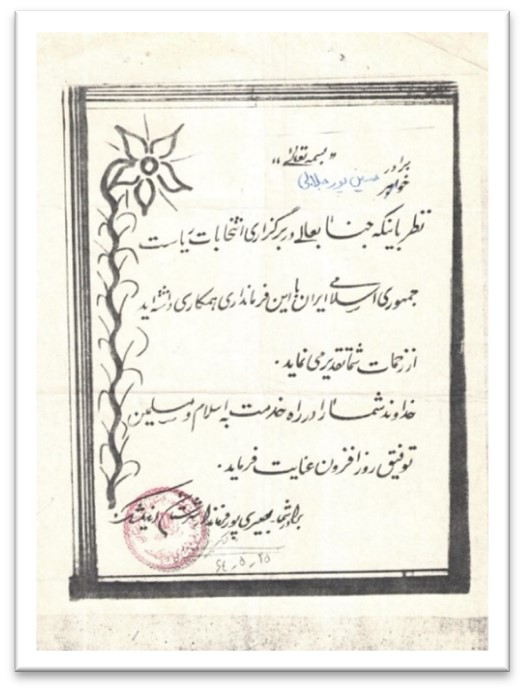 «بسمه تعالی»
برادر
خواهر حسین پور جلالی
نظر باینکه جنابعالی در برگزاری انتخابات ریاست
جمهوری اسلامی ایران با این فرمانداری همکاری داشته اید
از زحمات شما تقدیر می نماید.
خداوند شما را در راه خدمت به اسلام و مسلمین
توفیق روزافزون عنایت فرماید.
برادر شما
۶۴_۵_۲۵